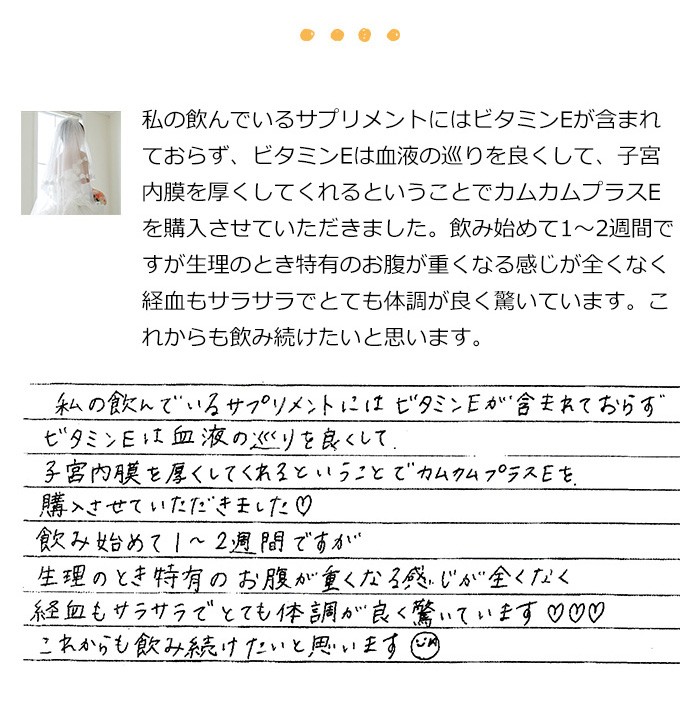 私の飲んでいるサプリメントにはビタミンEが含まれ
ておらず、ビタミンEは血液の巡りを良くして、子宮
内膜を厚くしてくれるということでカムカムプラスE
を購入させていただきました。飲み始めて1～2週間で
すが生理のとき特有のお腹が重くなる感じが全くなく
経血もサラサラでとても体調が良く驚いています。こ
れからも飲み続けたいと思います。
私の飲んでいるサプリメントにはビタミンEが含まれておらず
ビタミンEは血液の巡りを良くして、
子宮内膜を厚くしてくれるということでカムカムプラスEを
購入させていただきました♡
飲み始めて1～2週間ですが
生理のとき特有のお腹が重くなる感じが全くなく
経血もサラサラでとても体調が良く驚いています♡♡♡
これからも飲み続けたいと思います